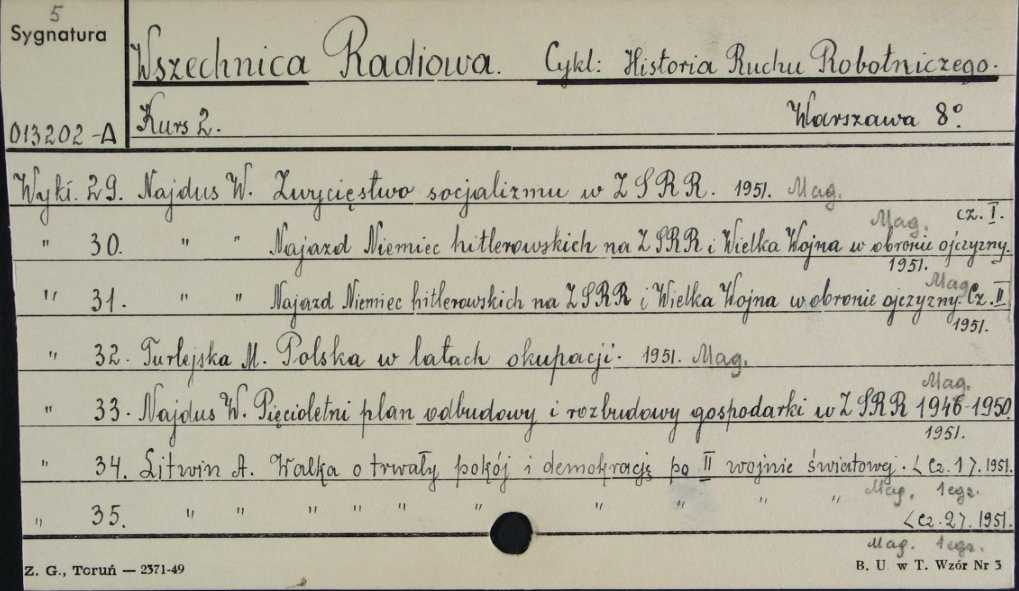 5
Sygnatura
Wszechnica Radiowa. Cykl: Historia Ruchu Robotniczego.
013202-A Kurs 2. Warszawa 8°.
Wykł. 29. Najdus W. Zwycięstwo socjalizmu w ZSRR. 1951. Mag.
Mag. cz. I.
" 30. " " Najazd Niemiec hitlerowskich na ZSRR i Wielka Wojna w obronie ojczyzny.
1951.
Mag.
" 31. " " Najazd Niemiec hitlerowskich na ZSRR i Wielka Wojna w obronie ojczyzny. Cz. II
1951.
" 32. Turlejska M. Polska w latach okupacji. 1951. Mag.
Mag.
" 33. Najdus W. Pięcioletni plan odbudowy i rozbudowy gospodarki w ZSRR 1946-1950.
1951.
" 34. Litwin A. Walka o trwały pokój i demokrację po II wojnie światowej. <Cz. 1>. 1951.
Mag. 1 egz.
" 35. " " " " " " " " " " <Cz. 2>. 1951.
Mag. 1 egz.
Z. G., Toruń — 2371-49 B. U. w T. Wzór Nr 3